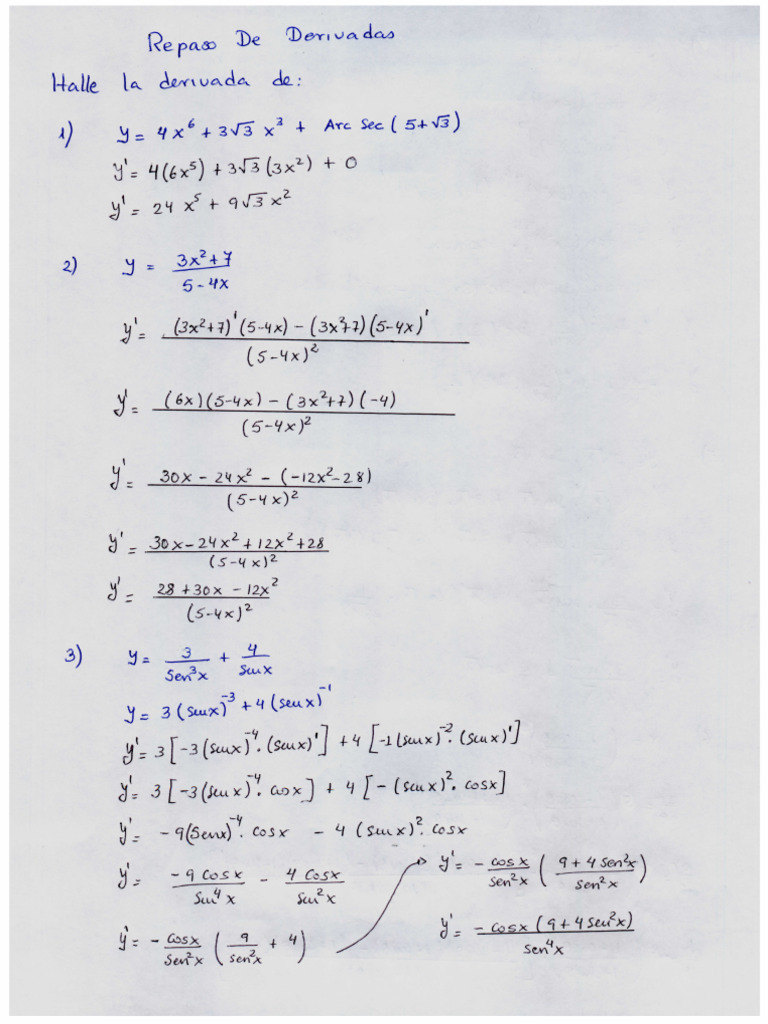 Repaso De Derivadas
Halle la derivada de:
1) y = 4x⁶ + 3√3 x³ + Arc Sec (5+√3)
y' = 4(6x⁵) + 3√3 (3x²) + 0
y' = 24 x⁵ + 9√3 x²
2) y = (3x²+7)/(5-4x)
y' = ((3x²+7)'(5-4x) - (3x²+7)(5-4x)')/(5-4x)²
y' = ((6x)(5-4x) - (3x²+7)(-4))/(5-4x)²
y' = (30x - 24x² - (-12x²-28))/(5-4x)²
y' = (30x - 24x² + 12x² + 28)/(5-4x)²
y' = (28 + 30x - 12x²)/(5-4x)²
3) y = 3/Sen³x + 4/senx
y = 3(senx)⁻³ + 4(senx)⁻¹
y' = 3[-3(senx)⁻⁴·(senx)'] + 4[-1(senx)⁻²·(senx)']
y' = 3[-3(senx)⁻⁴·cosx] + 4[-(senx)²·cosx]
y' = -9(Senx)⁻⁴·cosx - 4(senx)²·cosx
y' = -9 Cosx/Sen⁴x - 4 Cosx/Sen²x
y' = -Cosx/Sen²x (9/sen²x + 4)
y' = -cosx/sen²x ((9 + 4 sen²x)/sen²x)
y' = -cosx(9 + 4 sen²x)/sen⁴x